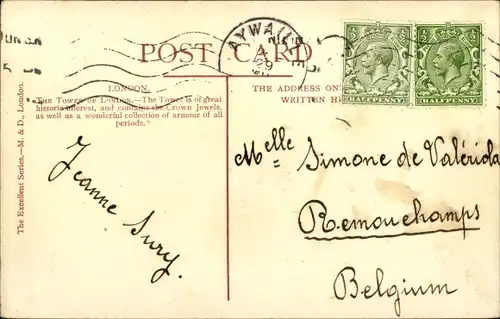 AYWAILLE
29
POST CARD
HALFPENNY HALFPENNY
LONDON.
THE TOWER OF LONDON.—The Tower is of great
historic interest, and contains the Crown Jewels,
as well as a wonderful collection of armour of all
periods.
THE ADDRESS ON
WRITTEN
The Excellent Series.—M. & D., London.
Jeanne Sury
Melle Simone de Valériola
Remouchamps
Belgium